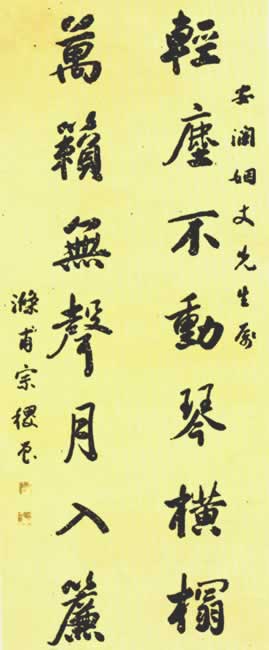 安瀾姻丈先生屬
輕塵不動琴橫榻
萬籟無聲月入簾
滌甫宗稷辰